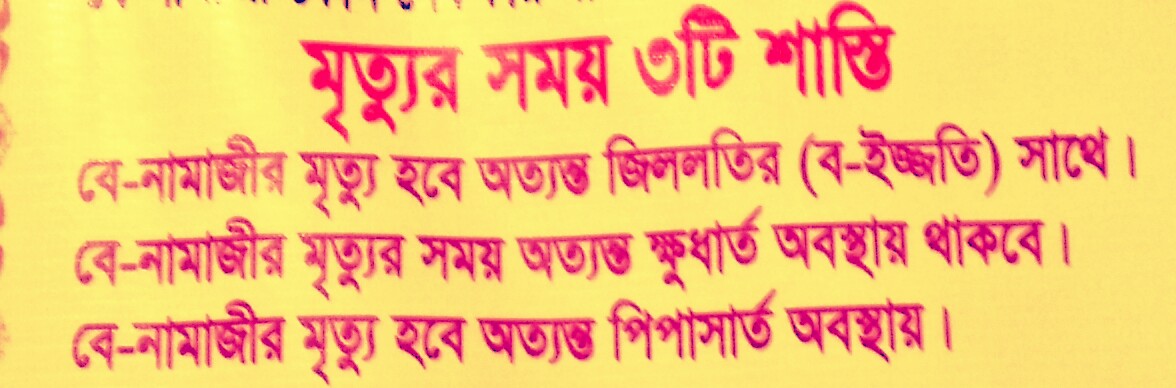 মৃত্যুর সময় ৩টি শাস্তি
বে-নামাজীর মৃত্যু হবে অত্যন্ত জিললতির (ব-ইজ্জতি) সাথে।
বে-নামাজীর মৃত্যুর সময় অত্যন্ত ক্ষুধার্ত অবস্থায় থাকবে।
বে-নামাজীর মৃত্যু হবে অত্যন্ত পিপাসার্ত অবস্থায়।